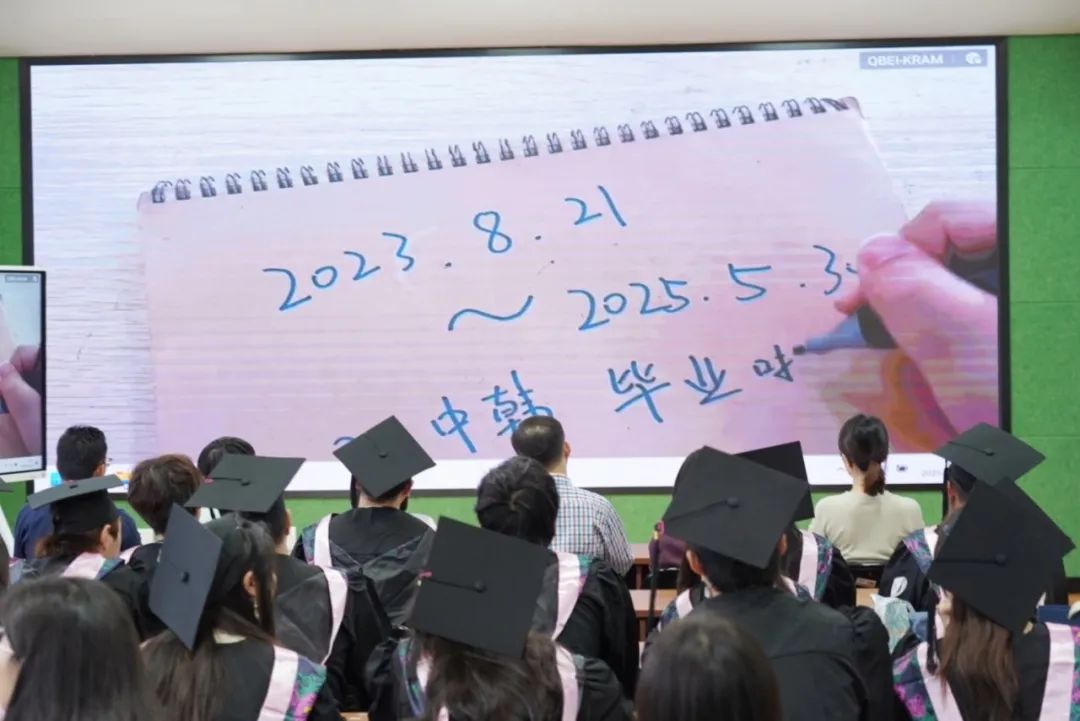 QBEI-KRAM
2023.8.21
~2025.5.3
中韩 毕业